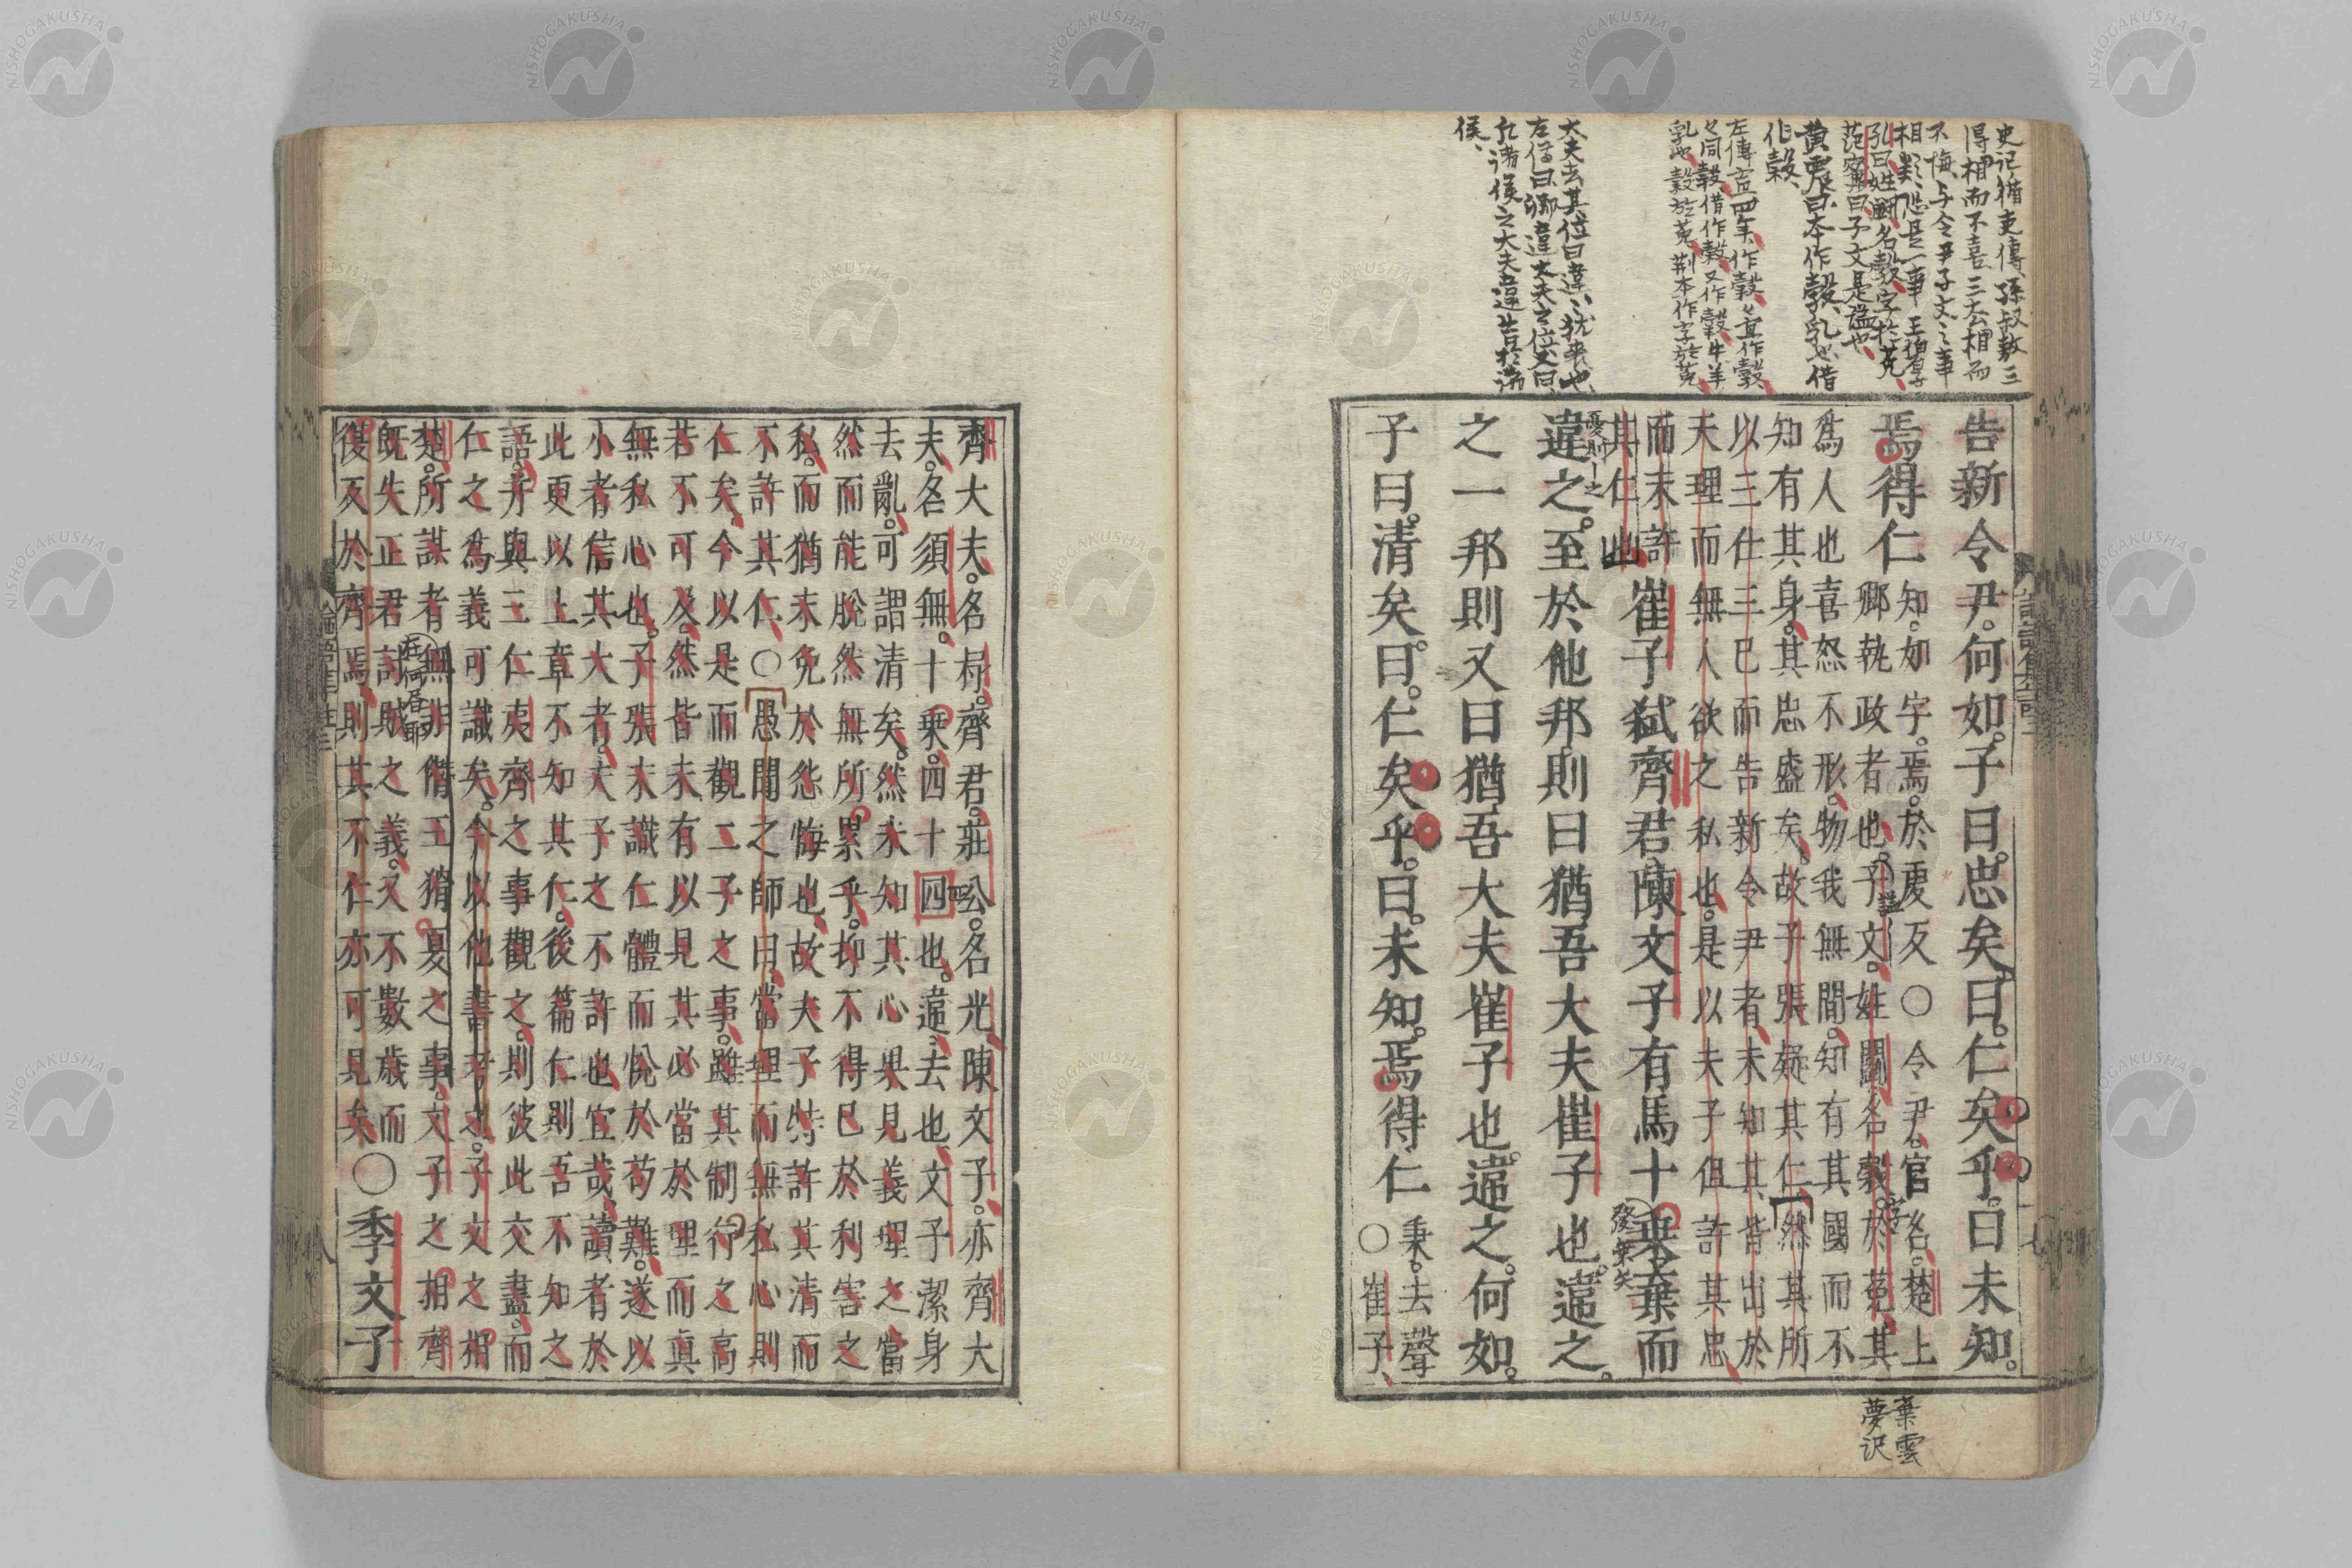 史記循吏傳、孫叔敖三
得相而不喜三去相而
不悔、与令尹子文之事
相類、恐是一事 王伯厚
孔曰姓鬪名穀字於菟
范甯曰子文是謚也
黄震曰本作㝅、乳也、借
作穀
左傳宣四年、作穀
同穀借作穀又作㝅牛羊
乳也、穀於菟荆本作字於菟
大夫去其位曰違、猶去也
左傳曰卿違大夫之位又曰
凡諸侯之大夫違告於諸
侯、
告新令尹。何如。子曰。忠矣。曰。仁矣乎。曰未知。
焉得仁
知。如字。焉。於虔反○令尹。官名。楚上
卿執政者也。子文。姓鬪名穀。於菟。其
爲人也喜怒不形。物我無間。知有其國而不
知有其身。其忠盛矣。故子張疑其仁。然其所
以三仕三已而告新令尹者。未知其皆出於
天理而無人欲之私也。是以夫子但許其忠
而未許
其仁也
崔子弑齊君陳文子有馬十乘棄而
違之。至於他邦則曰猶吾大夫崔子也。違之。
之一邦則又曰猶吾大夫崔子也。違之。何如。
子曰。清矣。曰。仁矣乎。曰。未知。焉得仁
乘。去聲
○崔子。
葉雲
夢沢
齊大夫。名杼。齊君。莊公。名光。陳文子。亦齊大
夫。名須無。十乘。四十四也。違。去也。文子潔身
去亂。可謂清矣。然未知其心果見義理之當
然而能脫然無所累乎。抑不得已於利害之
私。而猶未免於怨悔也。故夫子特許其清而
不許其仁。○愚聞之師曰。當理而無私心則
仁矣。今以是而觀二子之事。雖其制行之高
若不可及。然皆未有以見其必當於理而真
無私心也。子張未識仁體而悅於苟難。遂以
小者信其大者。夫子之不許也宜哉。讀者於
此更以上章不知其仁。後篇仁則吾不知之
語。幷與三仁夷齊之事觀之。則彼此交盡。而
仁之爲義可識矣。今以他書考之。子文之相
楚。所謀者。無非僭王猾夏之事。文子之相齊
既失正君討賊之義。又不數歲而
復反於齊焉。則其不仁亦可見矣○季文子